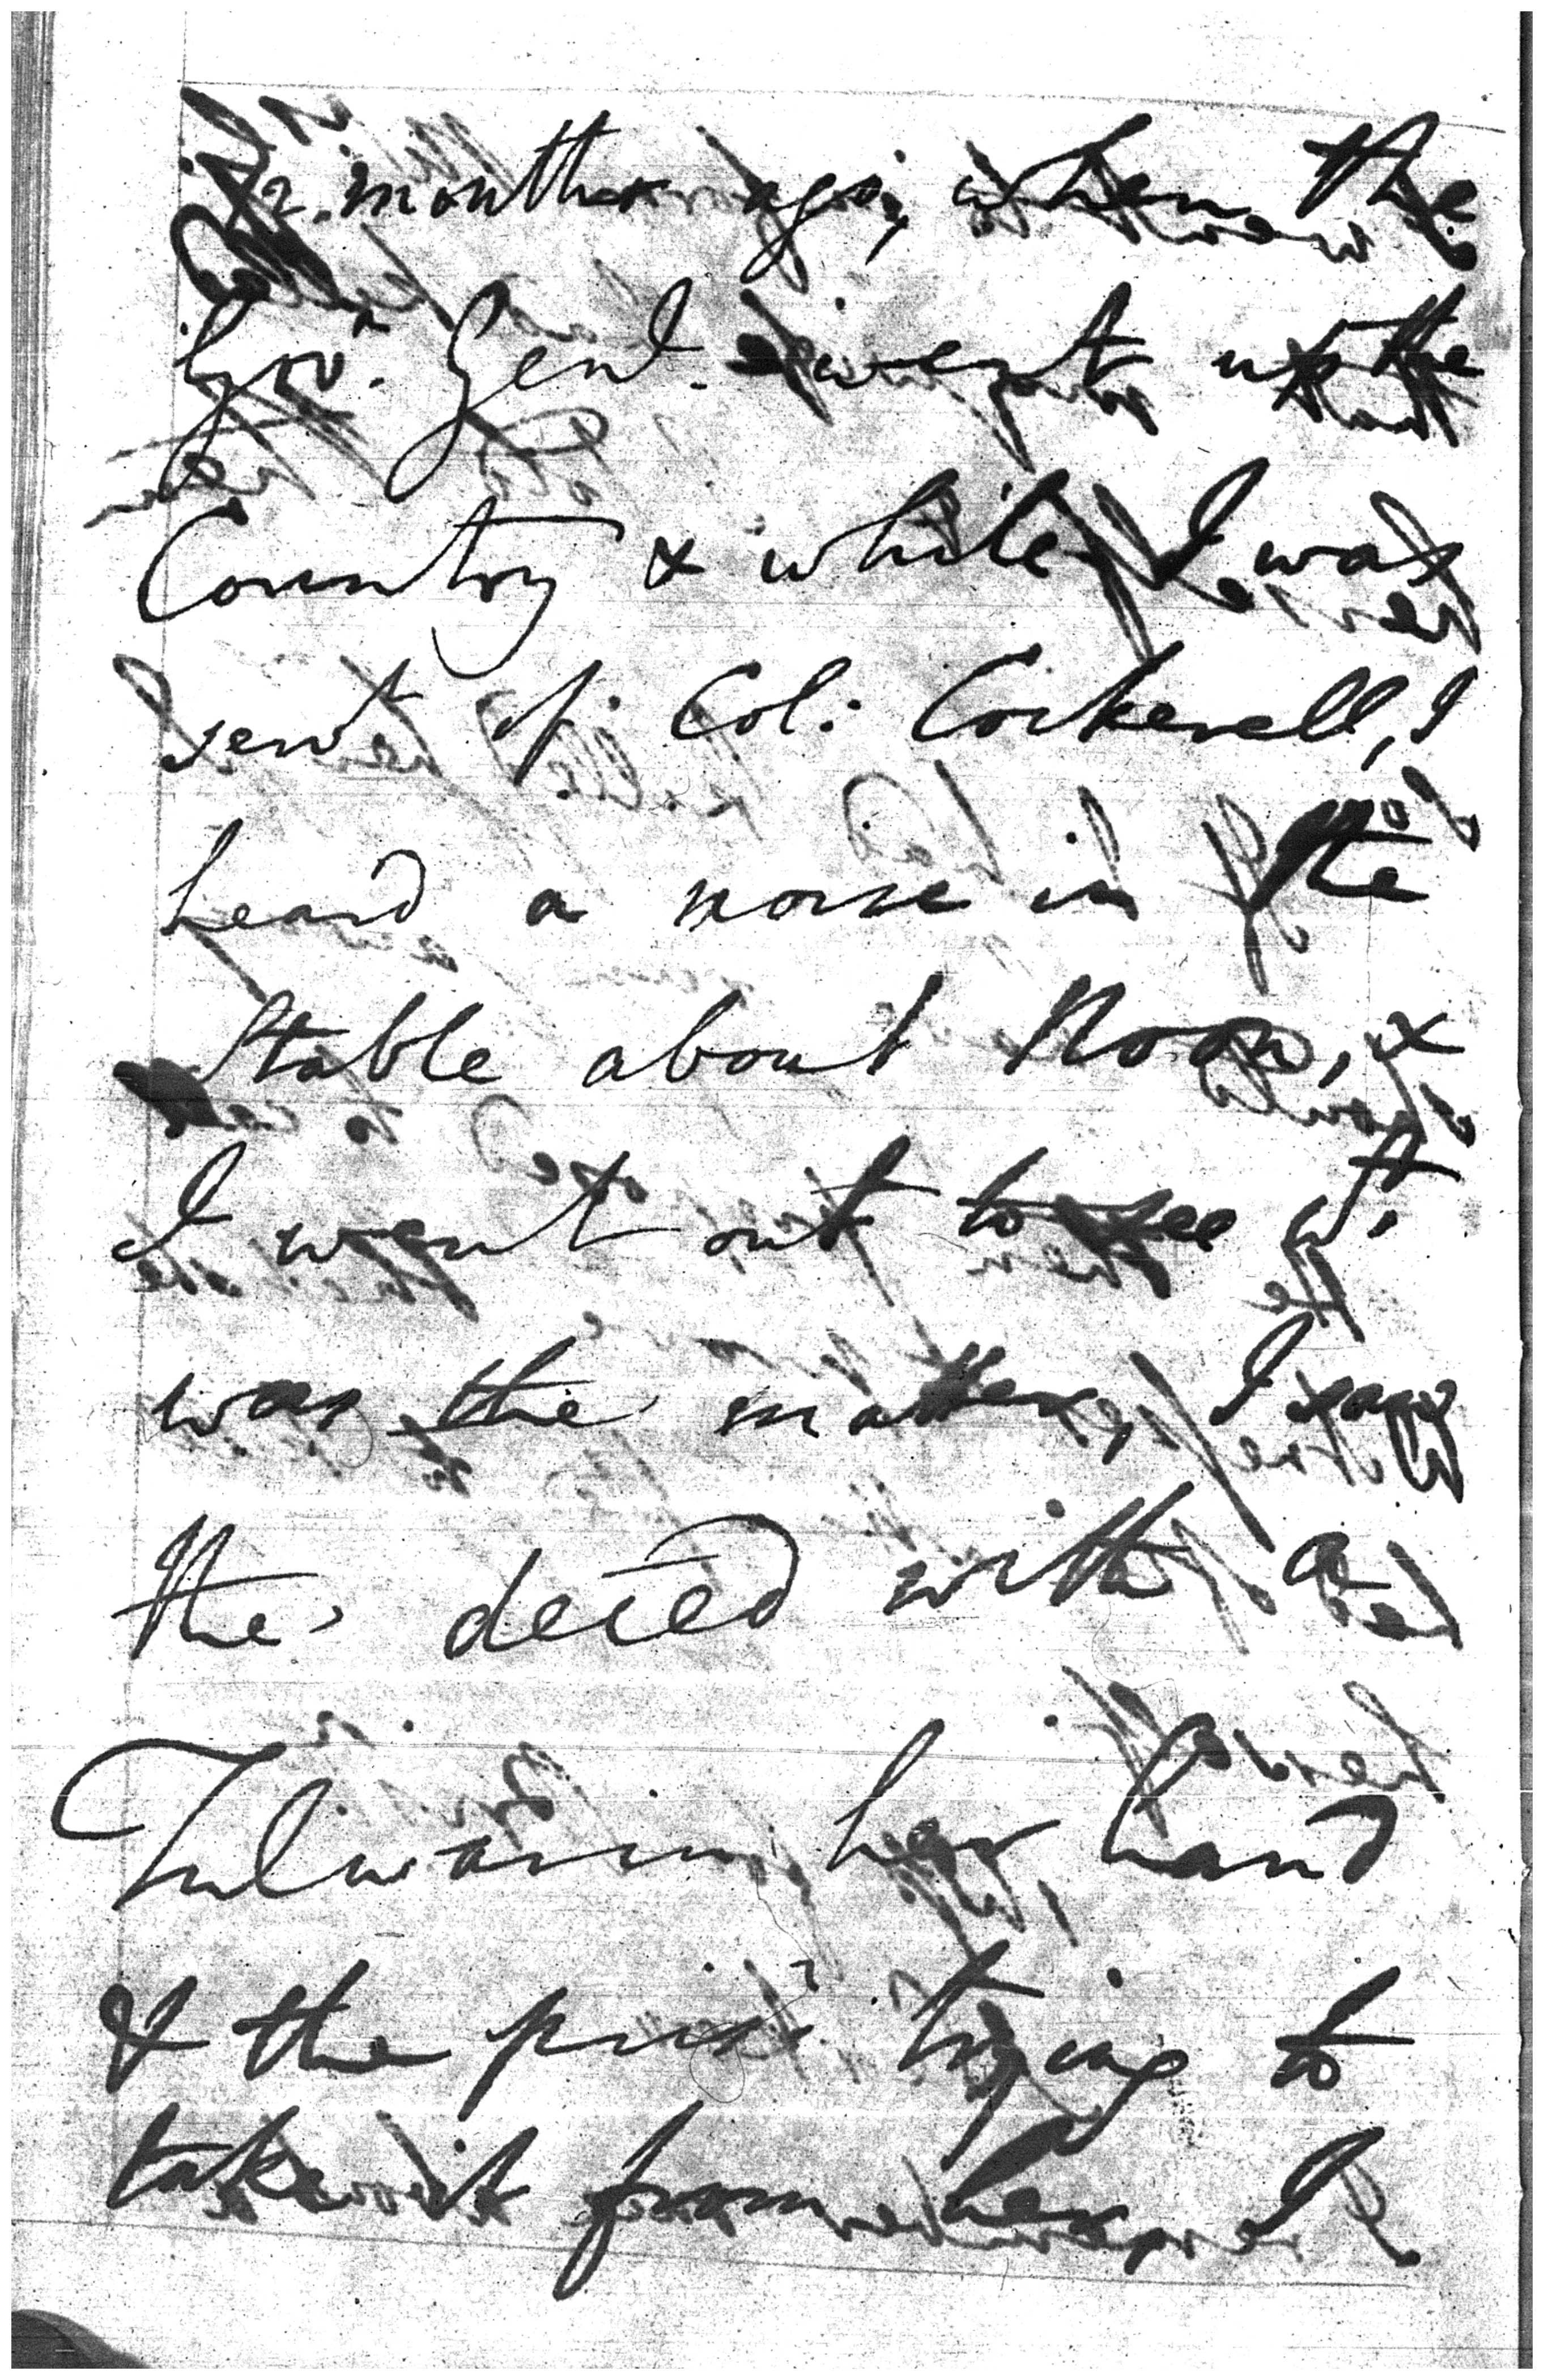 12 months ago, when the
Govr. Genl. went up the
Country & while I was
servt of Col: Cockerell, I
heard a noise in the
Stable about Noon, &
I went out to see wt
was the matter, I saw
the deced with a
Tulwar in her hand
& the prisr trying to
take it from her, I